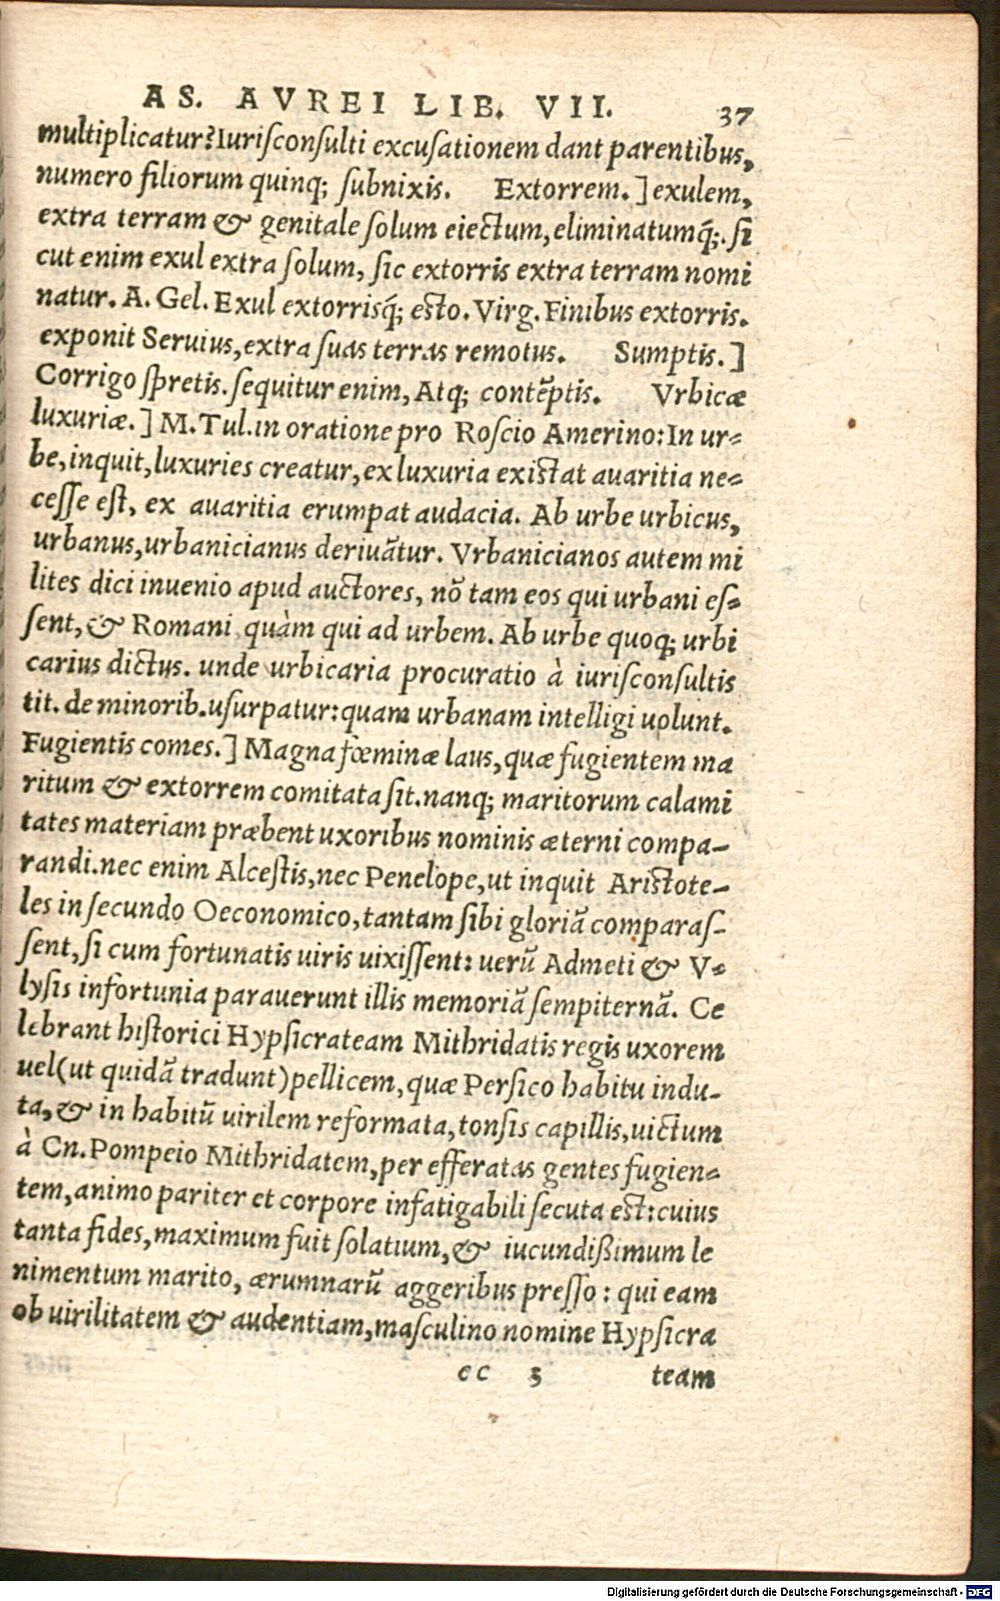 AS. AVREI LIB. VII. 37
multiplicatur? Iuriſconſulti excuſationem dant parentibus,
numero filiorum quinq; ſubnixis. Extorrem.] exulem,
extra terram & genitale ſolum eiectum, eliminatumq́;. ſi
cut enim exul extra ſolum, ſic extorris extra terram nomi
natur. A. Gel. Exul extorrisq́; esto. Virg. Finibus extorris.
exponit Seruius, extra ſuas terras remotus. Sumptis.]
Corrigo ſpretis. ſequitur enim, Atq; contẽptis. Vrbicæ
luxuriæ.] M. Tul. in oratione pro Roſcio Amerino: In ur-
be, inquit, luxuries creatur, ex luxuria existat auaritia ne-
ceſſe eſt, ex auaritia erumpat audacia. Ab urbe urbicus,
urbanus, urbanicianus deriuãtur. Vrbanicianos autem mi
lites dici inuenio apud auctores, nõ tam eos qui urbani eſ-
ſent, & Romani quàm qui ad urbem. Ab urbe quoq; urbi
carius dictus. unde urbicaria procuratio à iuriſconſultis
tit. de minorib. uſurpatur: quam urbanam intelligi uolunt.
Fugientis comes.] Magna fœminæ laus, quæ fugientem ma
ritum & extorrem comitata ſit. nanq; maritorum calami
tates materiam præbent uxoribus nominis æterni compa-
randi. nec enim Alceſtis, nec Penelope, ut inquit Aristote-
les in ſecundo Oeconomico, tantam ſibi gloriã comparaſ-
ſent, ſi cum fortunatis uiris uixiſſent: uerũ Admeti & V-
lyſis infortunia parauerunt illis memoriã ſempiternã. Ce
lebrant hiſtorici Hypſicrateam Mithridatis regis uxorem
uel (ut quidã tradunt) pellicem, quæ Perſico habitu indu-
ta, & in habitũ uirilem reformata, tonſis capillis, uictum
à Cn. Pompeio Mithridatem, per efferatas gentes fugien-
tem, animo pariter et corpore infatigabili ſecuta est: cuius
tanta fides, maximum fuit ſolatium, & iucundißimum le
nimentum marito, ærumnarũ aggeribus preſſo: qui eam
ob uirilitatem & audentiam, maſculino nomine Hypſicra
cc 3 team
Digitalisierung gefördert durch die Deutsche Forschungsgemeinschaft - DFG